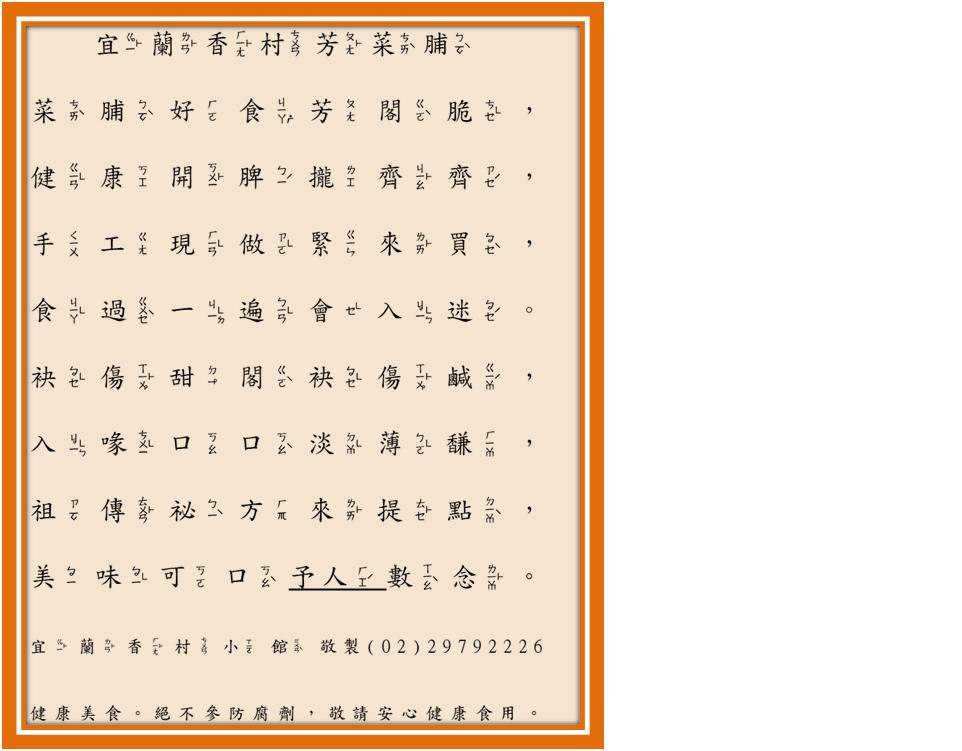 宜蘭香村芳菜脯
菜脯好食芳閣脆，
健康開脾攏齊齊，
手工現做緊來買，
食過一遍會入迷。
袂傷甜閣袂傷鹹，
入喙口口淡薄馦，
祖傳祕方來提點，
美味可口予人數念。
宜蘭香村小館敬製(02)29792226
健康美食。絕不參防腐劑，敬請安心健康食用。